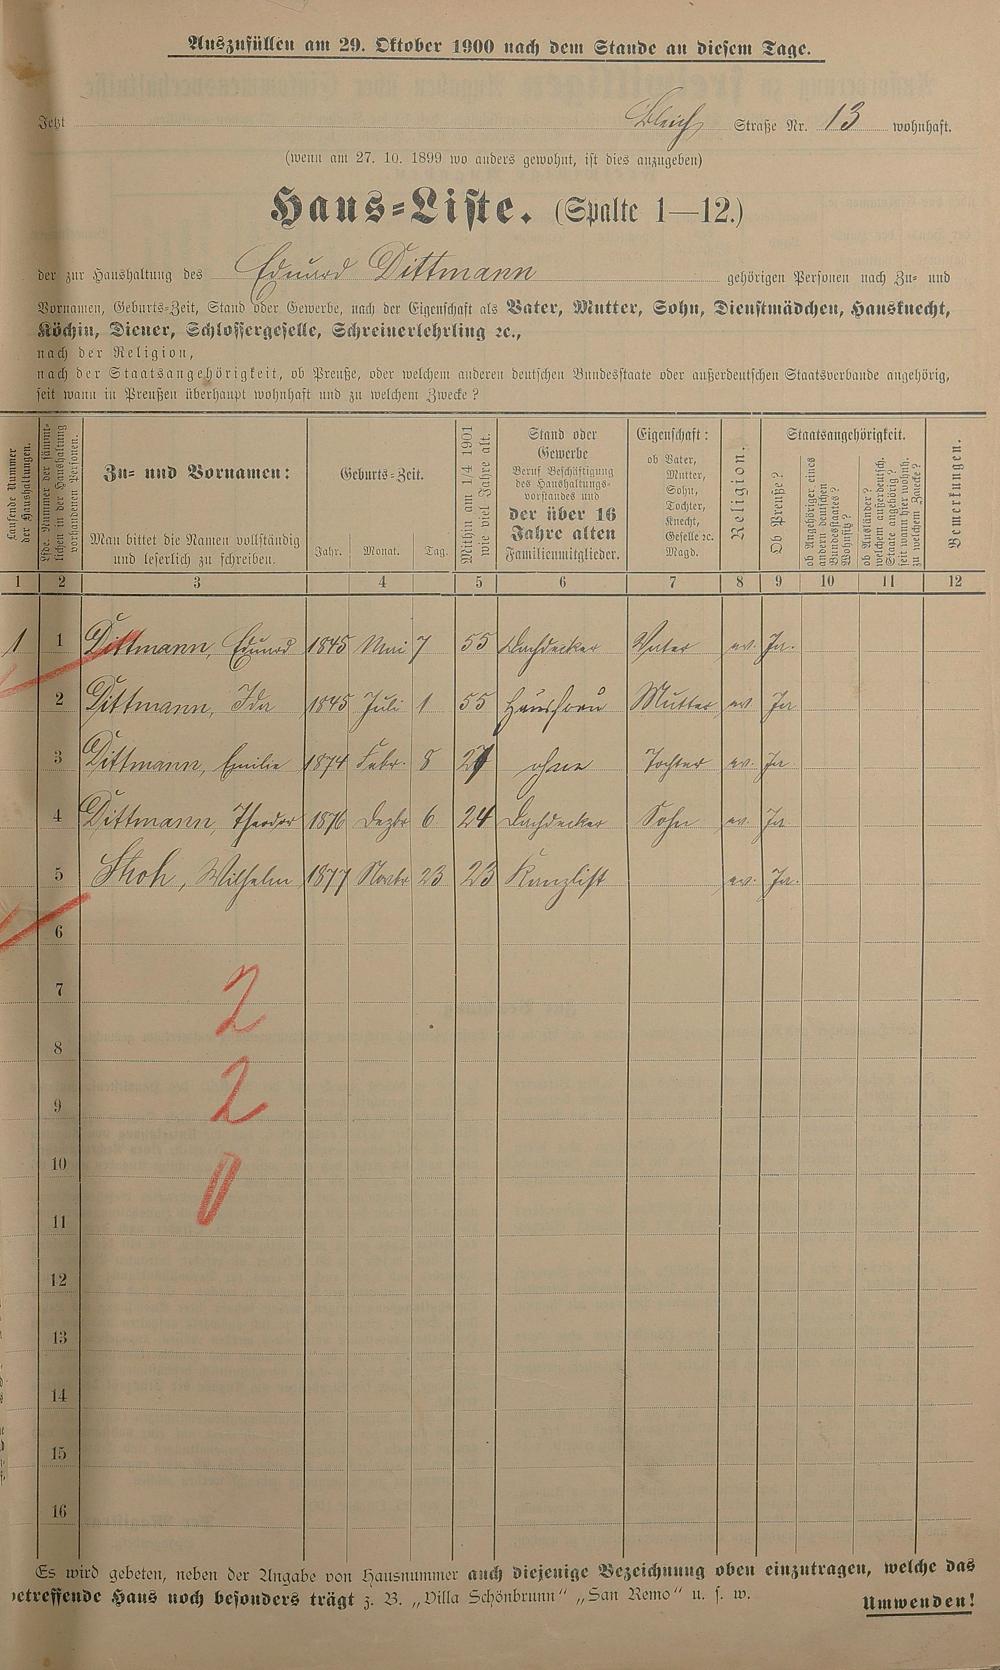 Auszufüllen am 29. Oktober 1900 nach dem Stande an diesem Tage.
Jetzt Bleich Straße Nr. 13 wohnhaft.
(wenn am 27. 10. 1899 wo anders gewohnt, ist dies anzugeben)
Haus=Liste. (Spalte 1—12.)
der zur Haushaltung des Eduard Dittmann gehörigen Personen nach Zu= und
Vornamen, Geburts=Zeit, Stand oder Gewerbe, nach der Eigenschaft als Vater, Mutter, Sohn, Dienstmädchen, Hausknecht,
Köchin, Diener, Schlossergeselle, Schreinerlehrling ꝛc.,
nach der Religion,
nach der Staatsangehörigkeit, ob Preuße, oder welchem anderen deutschen Bundesstaate oder außerdeutschen Staatsverbande angehörig,
seit wann in Preußen überhaupt wohnhaft und zu welchem Zwecke?
Laufende Nummer der Haushaltungen.
Lfde. Nummer der sämmtlichen in der Haushaltung vorhandenen Personen.
Zu= und Vornamen:
Man bittet die Namen vollständig
und leserlich zu schreiben.
Geburts=Zeit.
Jahr. Monat. Tag.
Mithin am 1/4 1901 wie viel Jahre alt.
Stand oder
Gewerbe
Beruf Beschäftigung
des Haushaltungs=
vorstandes und
der über 16
Jahre alten
Familienmitglieder.
Eigenschaft:
ob Vater,
Mutter,
Sohn,
Tochter,
Knecht,
Geselle ꝛc.
Magd.
Religion.
Staatsangehörigkeit.
Ob Preuße?
ob Angehöriger eines andern deutschen Bundesstaates? Wohnsitz?
ob Ausländer? welchem außerdeutsch. Staate angehörig? seit wann hier wohnh. zu welchem Zwecke?
Bemerkungen.
1 2 3 4 5 6 7 8 9 10 11 12
1 1 Dittmann, Eduard 1845 Mai 7 55 Dachdecker Vater ev. Ja.
2 Dittmann, Ida 1845 Juli 1 55 Hausfrau Mutter ev Ja
3 Dittmann, Emilie 1874 Febr. 8 27 ohne Tochter ev. Ja
4 Dittmann, Theodor 1876 Dezbr 6 24 Dachdecker Sohn ev. Ja
5 Wilhelm 1877 Novbr 23 23 Kanzlist ev. Ja.
6
7
2
8
9
2
10
0
11
12
13
14
15
16
Es wird gebeten, neben der Angabe von Hausnummer auch diejenige Bezeichnung oben einzutragen, welche das
betreffende Haus noch besonders trägt z. B. „Villa Schönbrunn" „San Remo" u. s. w.
Umwenden!